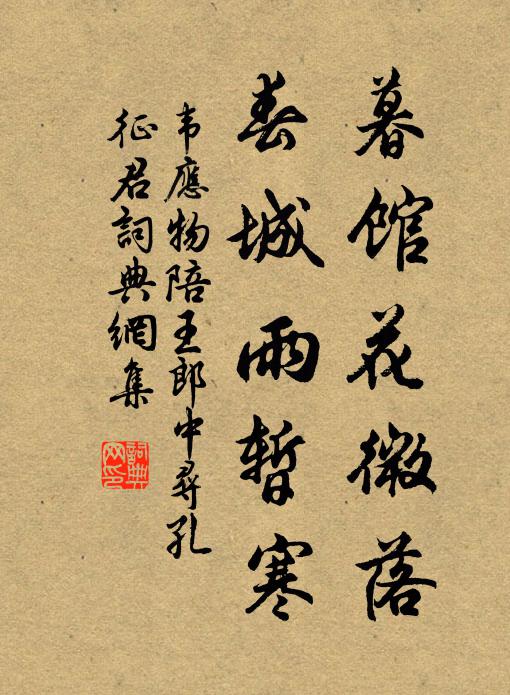 暮馆花微落
春城雨暫寒
韦應物陪王郎中尋孔
征君詞典網集
詞典
网印